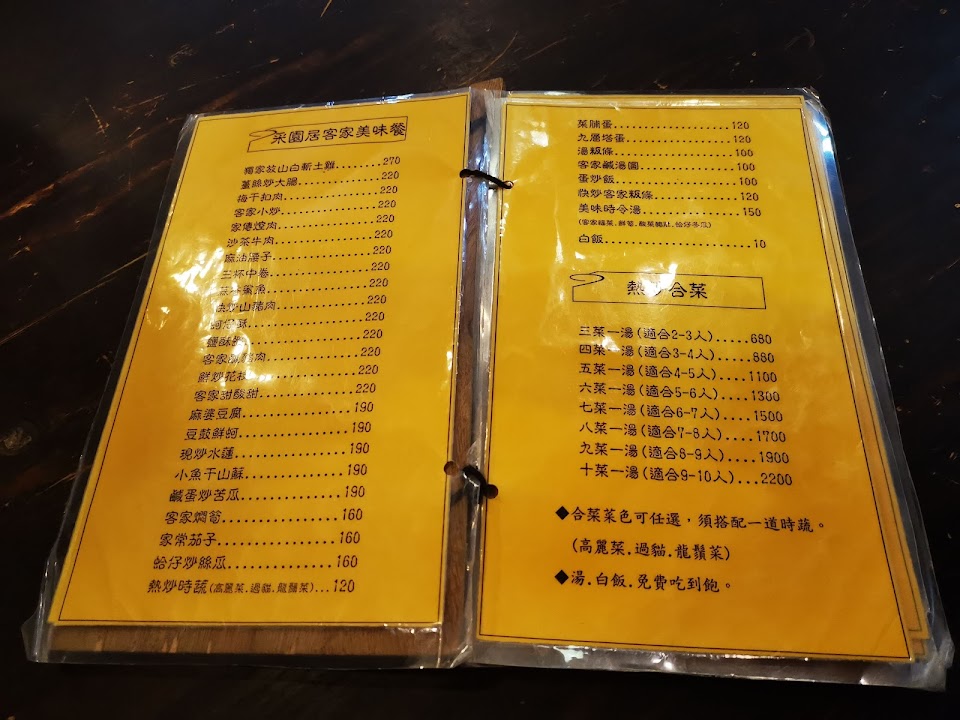 采園居客家美味餐
獨家放山白斬土雞........270
薑絲炒大腸..............220
梅干扣肉................220
客家小炒................220
家傳焢肉................220
沙茶牛肉................220
麻油腰子................220
三杯中卷................220
鯊魚................220
快炒山豬肉..............220
220
鹽酥................220
客家鹹豬肉..............220
鮮炒花枝................220
客家甜酸甜..............220
麻婆豆腐................190
豆鼓鮮蚵................190
現炒水蓮................190
小魚干山蘇..............190
鹹蛋炒苦瓜..............190
客家燜筍................160
家常茄子................160
蛤仔炒絲瓜..............160
熱炒時蔬(高麗菜.過貓.龍鬚菜)...120
菜脯蛋..................120
九層塔蛋................120
湯粄條..................100
客家鹹湯圓..............100
蛋炒飯..................100
快炒客家粄條............120
美味時令湯..............150
(客家福菜.鮮筍.酸菜豬肚.蛤仔冬瓜)
白飯....................10
熱炒合菜
三菜一湯(適合2-3人).....680
四菜一湯(適合3-4人).....880
五菜一湯(適合4-5人)....1100
六菜一湯(適合5-6人)....1300
七菜一湯(適合6-7人)....1500
八菜一湯(適合7-8人)....1700
九菜一湯(適合8-9人)....1900
十菜一湯(適合9-10人)...2200
◆合菜菜色可任選，須搭配一道時蔬。
(高麗菜.過貓.龍鬚菜)
◆湯.白飯.免費吃到飽。